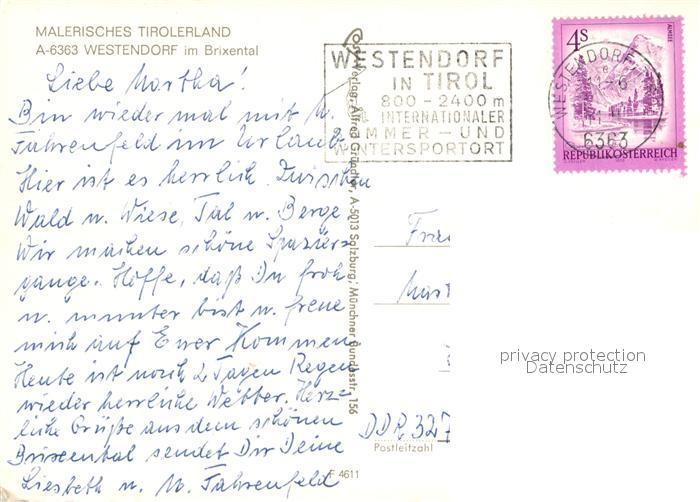 MALERISCHES TIROLERLAND
A-6363 WESTENDORF im Brixental
Liebe Martha!
Bin wieder mal mit W.
Fahrenfeld im Urlaub.
Hier ist es herrlich. Zwischen
Wald u. Wiese, Tal u. Berge
Wir machen schöne Spazier-
gänge. Hoffe, daß Du froh
u. munter bist u. freue
mich auf Euer Kommen
Heute ist nach 2 Tagen Regen
wieder herrliche Wetter. Herz-
liche Grüße aus dem schönen
Brixental sendet Dir Deine
Liesbeth u. W. Fahrenfeld
Cosy-Verlag, Alfred Gründler, A-5013 Salzburg, Münchner Bundesstr. 156
WESTENDORF
IN TIROL
800-2400 m
INTERNATIONALER
SOMMER- UND
WINTERSPORTORT
4S
ALMSEE
WESTENDORF
6363
REPUBLIK ÖSTERREICH
Frau
Mart
privacy protection
Datenschutz
DDR 327
Postleitzahl
F 4611